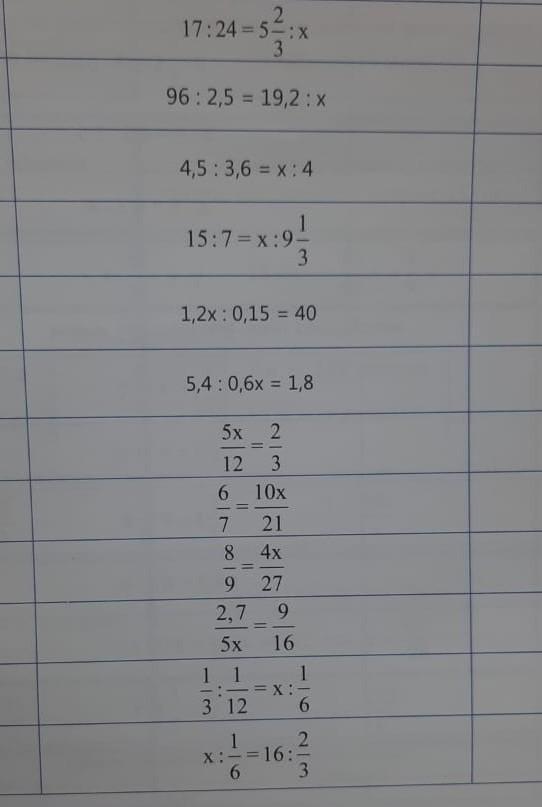 17 : 24 = 5 2/3 : x
96 : 2,5 = 19,2 : x
4,5 : 3,6 = x : 4
15 : 7 = x : 9 1/3
1,2x : 0,15 = 40
5,4 : 0,6x = 1,8
5x/12 = 2/3
6/7 = 10x/21
8/9 = 4x/27
2,7/5x = 9/16
1/3 : 1/12 = x : 1/6
x : 1/6 = 16 : 2/3